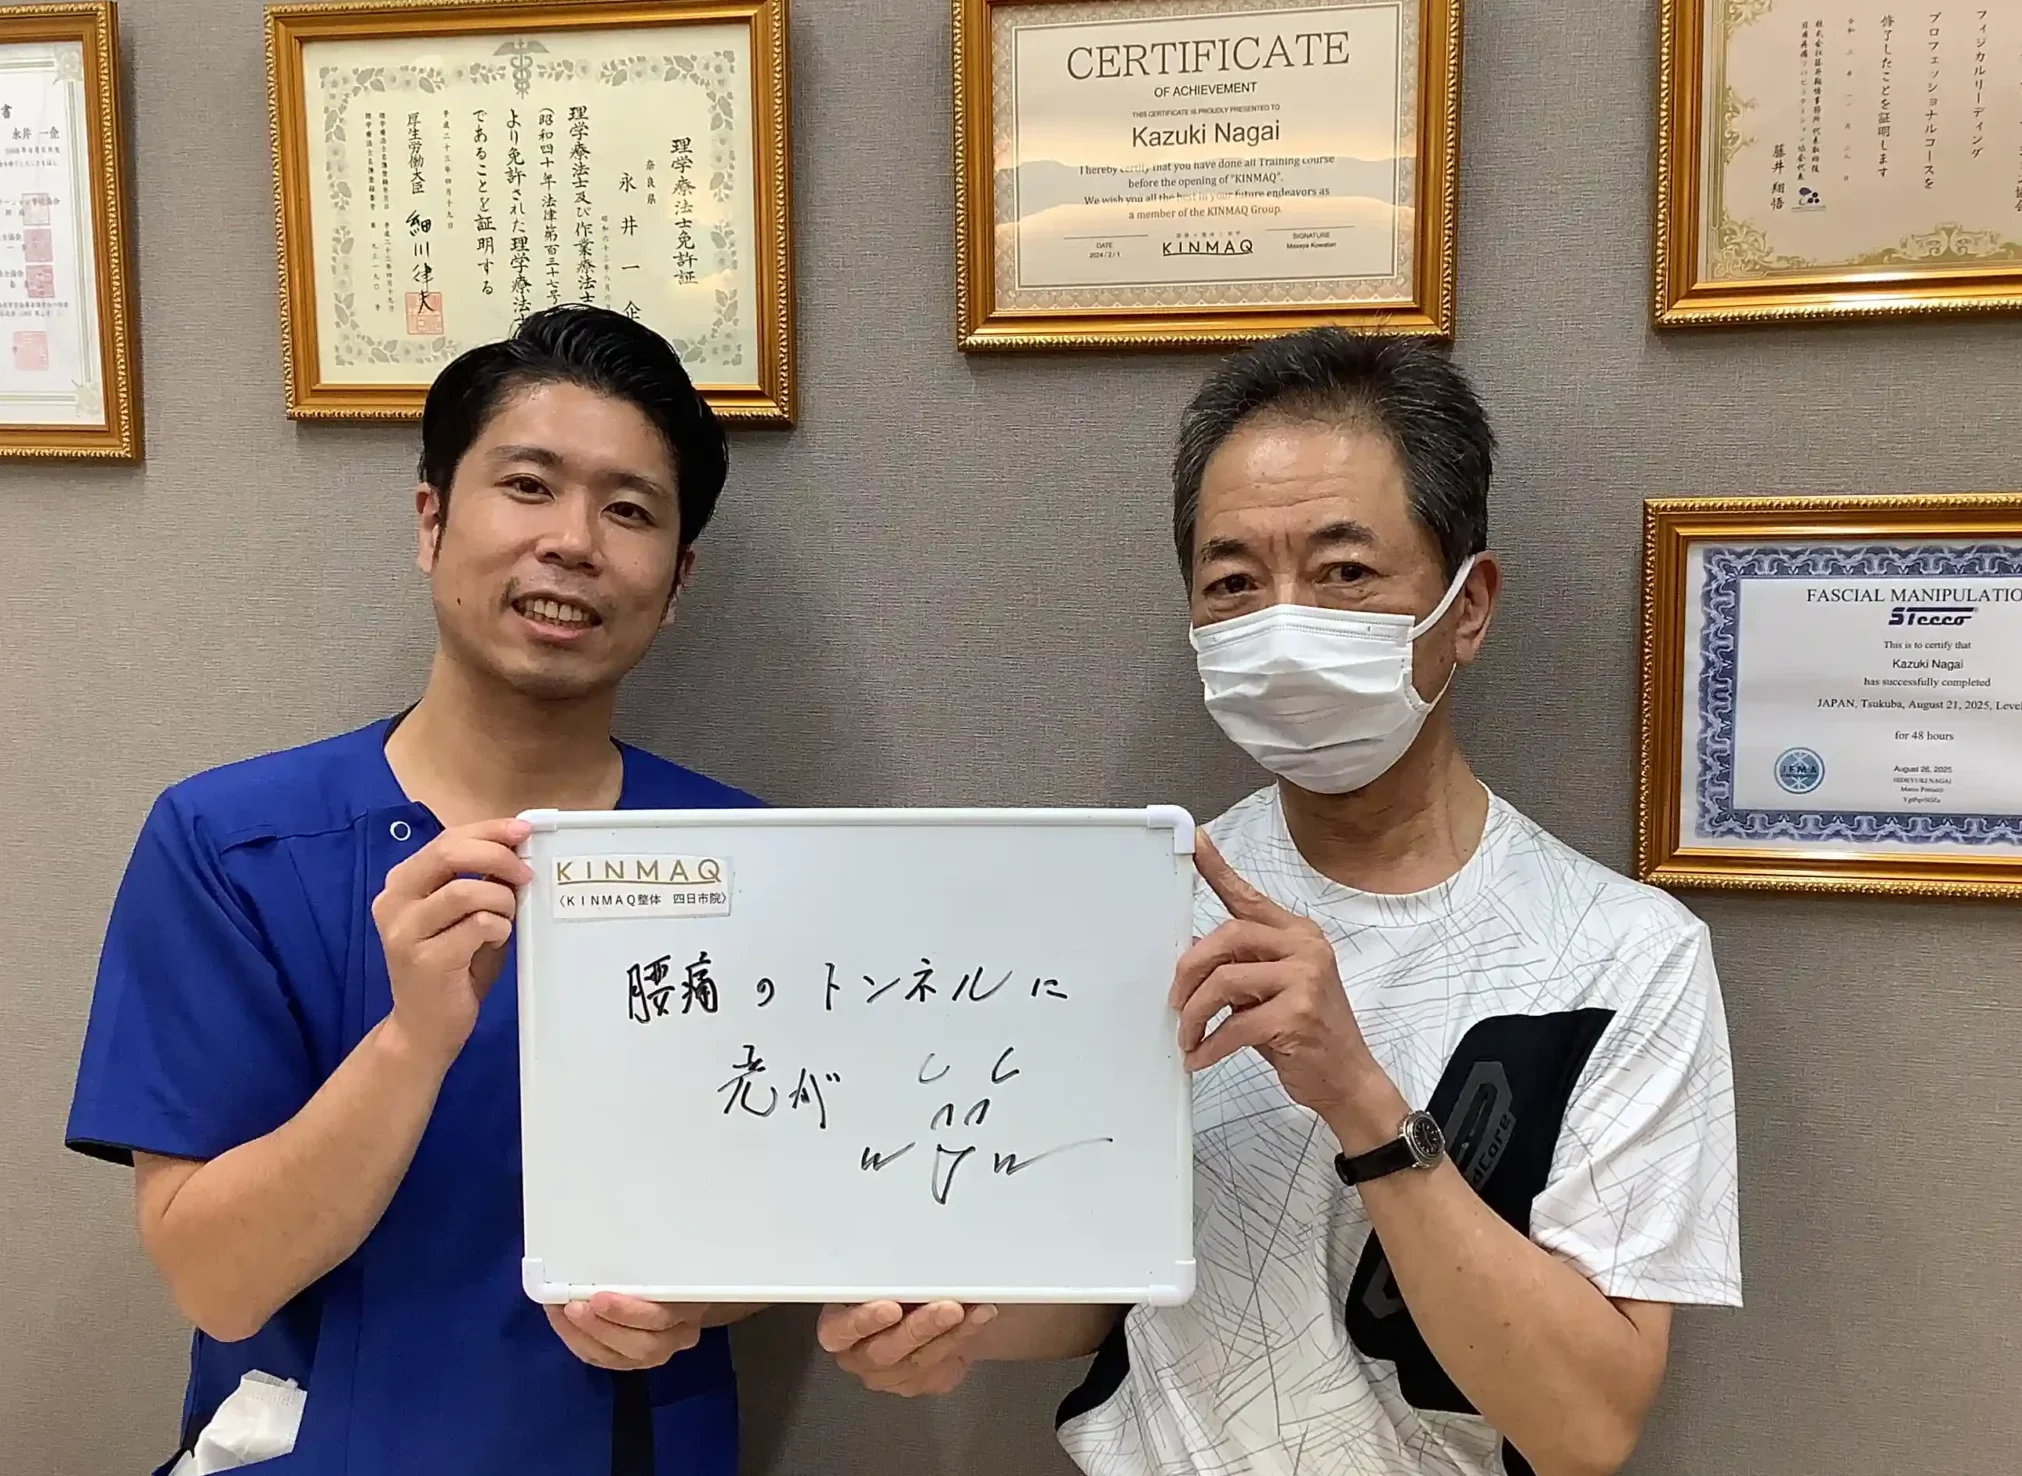 書
永井 一企
理学療法士免許証
奈良県
永井一企
昭和六十三年八月六
理学療法士及び作業療法士
(昭和四十年法律第百三十七号
より免許された理学療法士
であることを証明する
平成二十三年四月十九日
厚生労働大臣 細川律夫
CERTIFICATE
OF ACHIEVEMENT
THIS CERTIFICATE IS PROUDLY PRESENTED TO
Kazuki Nagai
I hereby certify that you have done all Training course
before the opening of "KINMAQ".
We wish you all the best in your future endeavors as
a member of the KINMAQ Group.
DATE
2024/2/1
KINMAQ
SIGNATURE
フィジカルリーディング
プロフェッショナルコースを
修了したことを証明します
藤井 翔悟
FASCIAL MANIPULATIO
STecco
This is to certify that
Kazuki Nagai
has successfully completed
JAPAN, Tsukuba, August 21, 2025, Level
for 48 hours
August 26, 2025
HIDEYUKI NAGAI
IFMA
KINMAQ
〈KINMAQ整体 四日市院〉
腰痛のトンネルに
光が